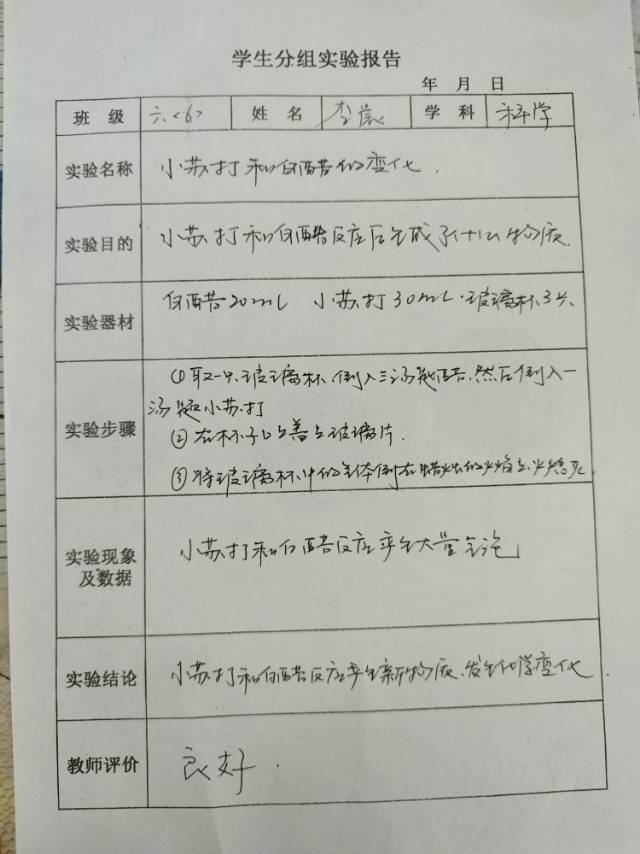 学生分组实验报告
年 月 日
班 级 六.<6> 姓 名 李 学 科 科学
实验名称 小苏打和白醋的变化.
实验目的 小苏打和白醋反应后生成了什么物质.
实验器材 白醋20mL 小苏打30mL.玻璃杯3只
实验步骤 ①取一只玻璃杯.倒入三汤匙醋.然后倒入一
汤匙小苏打
②在杯子口上盖上玻璃片.
③将玻璃杯中的气体倒在蜡烛的火焰上.火熄灭
实验现象
及数据 小苏打和白醋反应产生大量气泡
实验结论 小苏打和白醋反应产生新物质.发生化学变化.
教师评价 良好.